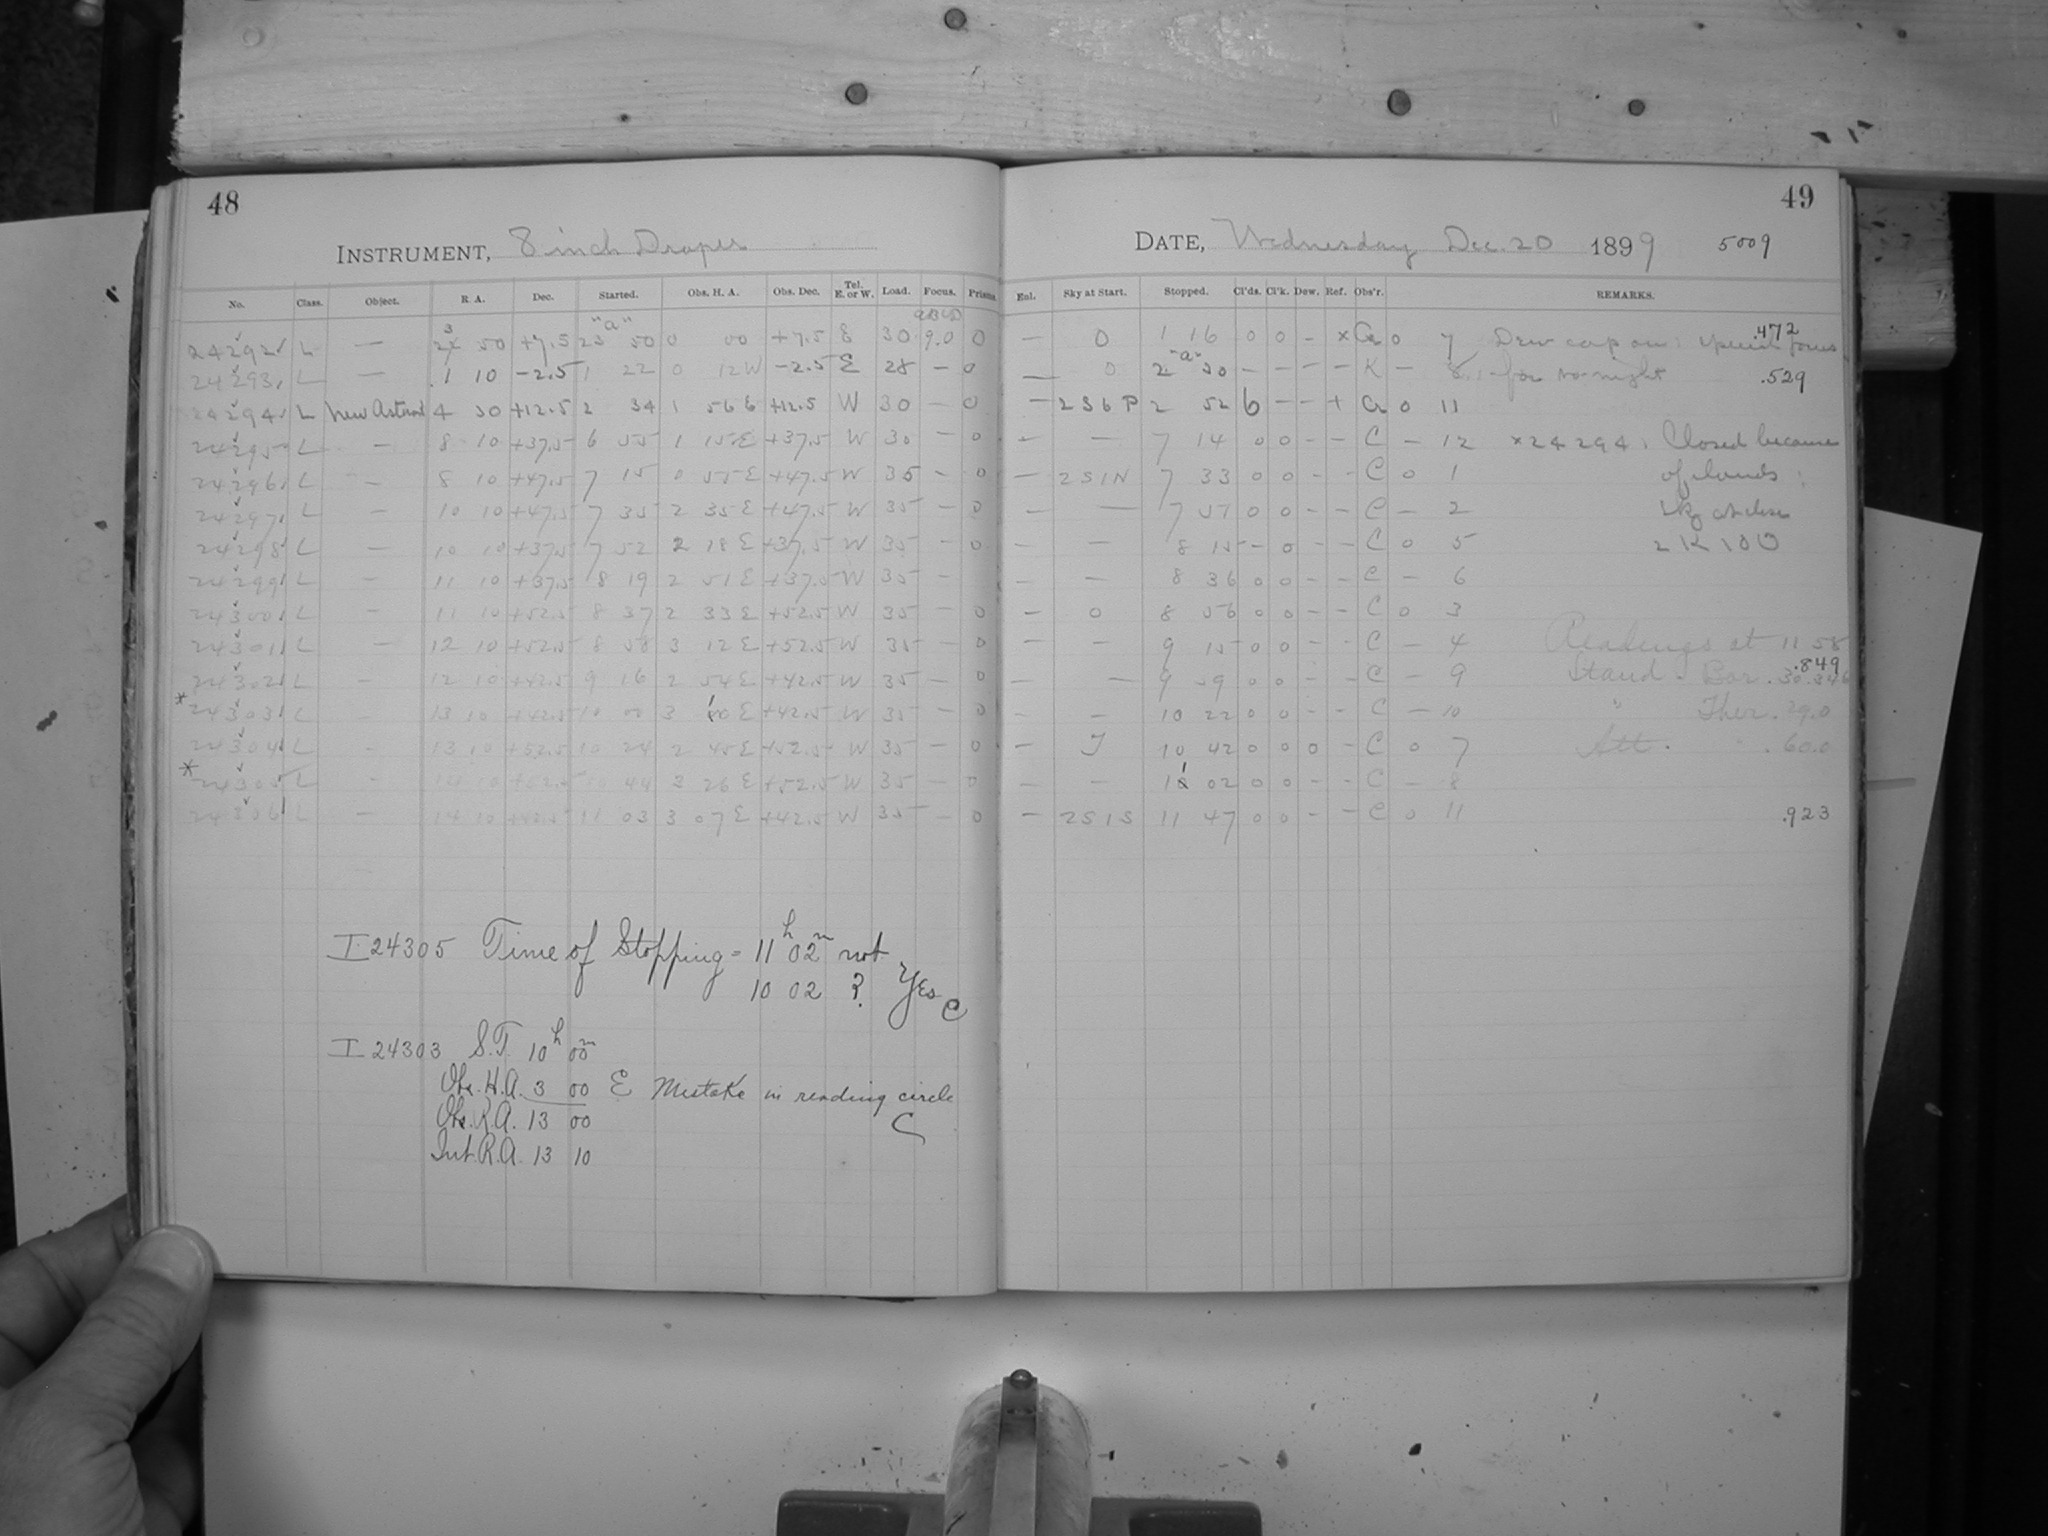 48
INSTRUMENT, 8 inch Draper
No. Class. Object. R. A. Dec. Started. Obs. H. A. Obs. Dec. Tel. E. or W. Load. Focus. Prisms.
24292 L — 50 +7.5 23 "a" 50 0 00 +7.5 E 30 9.0 0
24293 L — 1 10 -2.5 1 22 0 12 W -2.5 E 28 — 0
24294 L New Asteroid 4 30 +12.5 2 34 1 56 E +12.5 W 30 — 0
24295 L — 8 10 +37.5 6 55 1 15 E +37.5 W 30 — 0
24296 L — 8 10 +47.5 7 15 0 55 E +47.5 W 35 — 0
24297 L — 10 10 +47.5 7 35 2 35 E +47.5 W 35 — 0
24298 L — 10 10 +37.5 7 52 2 18 E +37.5 W 35 — 0
24299 L — 11 10 +37.5 8 19 2 51 E +37.5 W 35 —
24300 L — 11 10 +52.5 8 37 2 33 E +52.5 W 35 — 0
24301 L — 12 10 +52.5 8 58 3 12 E +52.5 W 35 — 0
24302 L — 12 10 +42.5 9 16 2 54 E +42.5 W 35 — 0
* 24303 L — 13 10 +42.5 10 00 3 10 E +42.5 W 35 — 0
24304 L — 13 10 +52.5 10 24 2 45 E +52.5 W 35 — 0
* 24305 L — 14 10 +52.5 10 44 3 26 E +52.5 W 35 — 0
24306 L — 14 10 +42.5 11 03 3 07 E +42.5 W 35 — 0
I 24305 Time of Stopping = 11h 02m not
10 02 ? Yes C
I 24303 S.T. 10h 00m
Obs. H.A. 3 00 E Mistake in reading circle
Obs. R.A. 13 00 C
Int. R.A. 13 10
49
DATE, Wednesday Dec. 20 1899 5009
Enl. Sky at Start. Stopped. Cl'ds. Cl'k. Dew. Ref. Obs'r. REMARKS.
— 0 1 16 0 0 - x 0 7 Dew cap on: focus .472
— 0 2 "a" 20 — — — — K — 8 for to-night .529
— 2 S 6 P 2 52 6 — — + 0 11
— — 7 14 0 0 - - C — 12 x 24294: Closed because
— 2S1N 7 33 0 0 - - C 0 1 of clouds:
— — 7 51 0 0 - - C — 2 Sky at close
— — 8 15 - 0 - - C 0 5 2 K 10 0
— — 8 36 0 0 - - C — 6
— 0 8 56 0 0 - - C 0 3
— — 9 15 0 0 - - C — 4 Readings at 11 58
— — 9 59 0 0 - - C — 9 Stand. Bar. 30.346 .849
— — 10 22 0 0 - - C — 10 " Ther. 29.0
— J 10 42 0 0 0 - C 0 7 Att. " 60.0
— — 11 02 0 0 - - C — 8
— 2S1S 11 47 0 0 - - C 0 11 .923